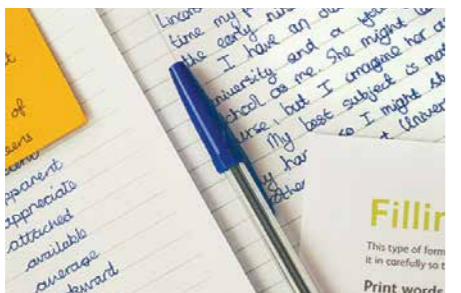 of
pparent
appreciate
attached
available
average
kward
time my
the early
I have an
university and a
school as me. She might
urse, but I imagine her as
My best subject is
so I might
at Univer
Fillin
This type of form
it in carefully so t
Print words